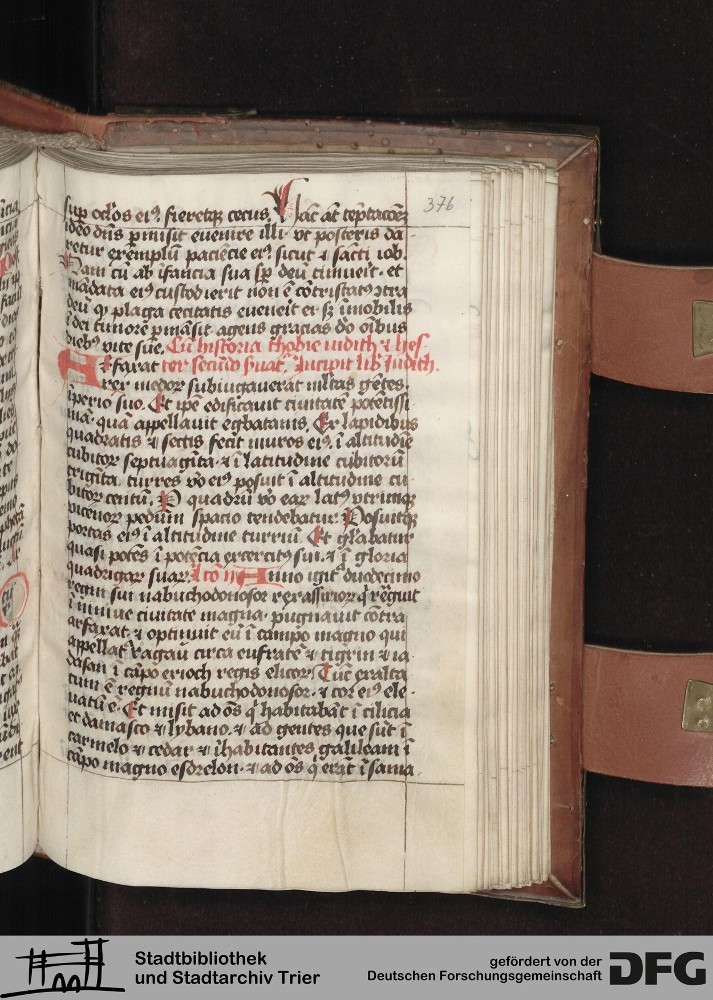 376
sup̄ oclōs eiꝰ. fieretqꝫ cecus. Hāc aūt tēptacōeꝫ
ideo dn̄s ꝑmisit euenire illi. vt posteris da-
retur exemplū paciēcie eiꝰ. sicut ⁊ sācti iob.
Nam cū ab īfancia sua sꝑ deū timueit. et
mādata eiꝰ custodierit non ē cōtristatꝰ ↄtra
deū qꝫ plaga cecitatis eueneit ei. sꝫ īmobilis
ī dei timore ꝑmāsit. agens gracias dō oībus
diebꝰ vite sue.
Arfaxat
rex medoꝝ subiugauerat mltas gētes.
īperio suo. Et ip̄e edificauit ciuitatē potētissi-
mā. quā appellauit egbatanis. Ex lapidibus
quadratis ⁊ sectis fecit muros eiꝰ. ī altitudīe
cubitoꝝ septuagīta. ⁊ ī latitudine cubitorū
trigīta. turres vo eiꝰ posuit ī altitudine cu-
bitoꝝ centū. P quadrū vo eaꝝ latꝰ vtrimqꝫ
vicenoꝝ pedum spacio tendebatur. Posuitqꝫ
portas eiꝰ ī altitudine turriū. Et gl̄abatur
quasi potēs ī potēcia exercitꝰ sui. ⁊ ī gloria
quadrigaꝝ suaꝝ. Anno igit̄ duodecimo
regni sui nabuchodonosor rex assirioꝝ q̄ regnuit
ī niniue ciuitate magna. pugnauit contra
arfaxat. ⁊ optinuit eū ī campo magno qui
appellat̄ ragau circa eufratē ⁊ tigrin ⁊ ia-
dasan ī cāpo erioch regis elicoꝝ. Tūc exalta-
tum ē regnū nabuchodonosor. ⁊ cor eiꝰ ele-
uatū ē. Et misit ad oēs q̄ habitabāt ī cilicia
et damasco ⁊ lybano. ⁊ ad gentes que sūt ī
carmelo ⁊ cedar ⁊ īhabitantes galileam ī
cāpo magno esdrelon. ⁊ ad oēs q̄ erāt ī sama-
Stadtbibliothek
und Stadtarchiv Trier
gefördert von der
Deutschen Forschungsgemeinschaft
DFG